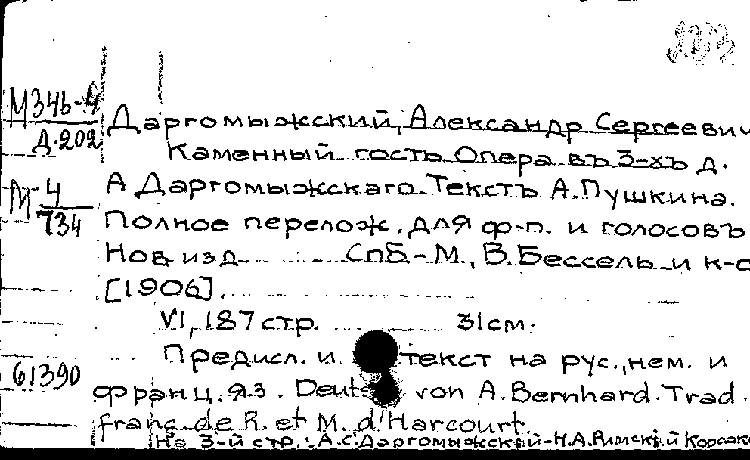 М346-4
Д.202
М-4
734
61390
Даргомыжский, Александр Сергеевич
Каменный гость Опера въ 3-хъ д.
А Даргомыжскаго. Текстъ А. Пушкина.
Полное перелож. для ф-п. и голосовъ
Нов изд СпБ-М, В. Бессель и к-о
[1906].
VI, 187 стр. 31 см.
Предисл. и текст на рус., нем. и
франц. яз. Deutsch von A. Bernhard. Trad.
franç. de R. et M. d'Harcourt.
На 3-й стр.: А.С. Даргомыжский-Н.А. Римский Корсак